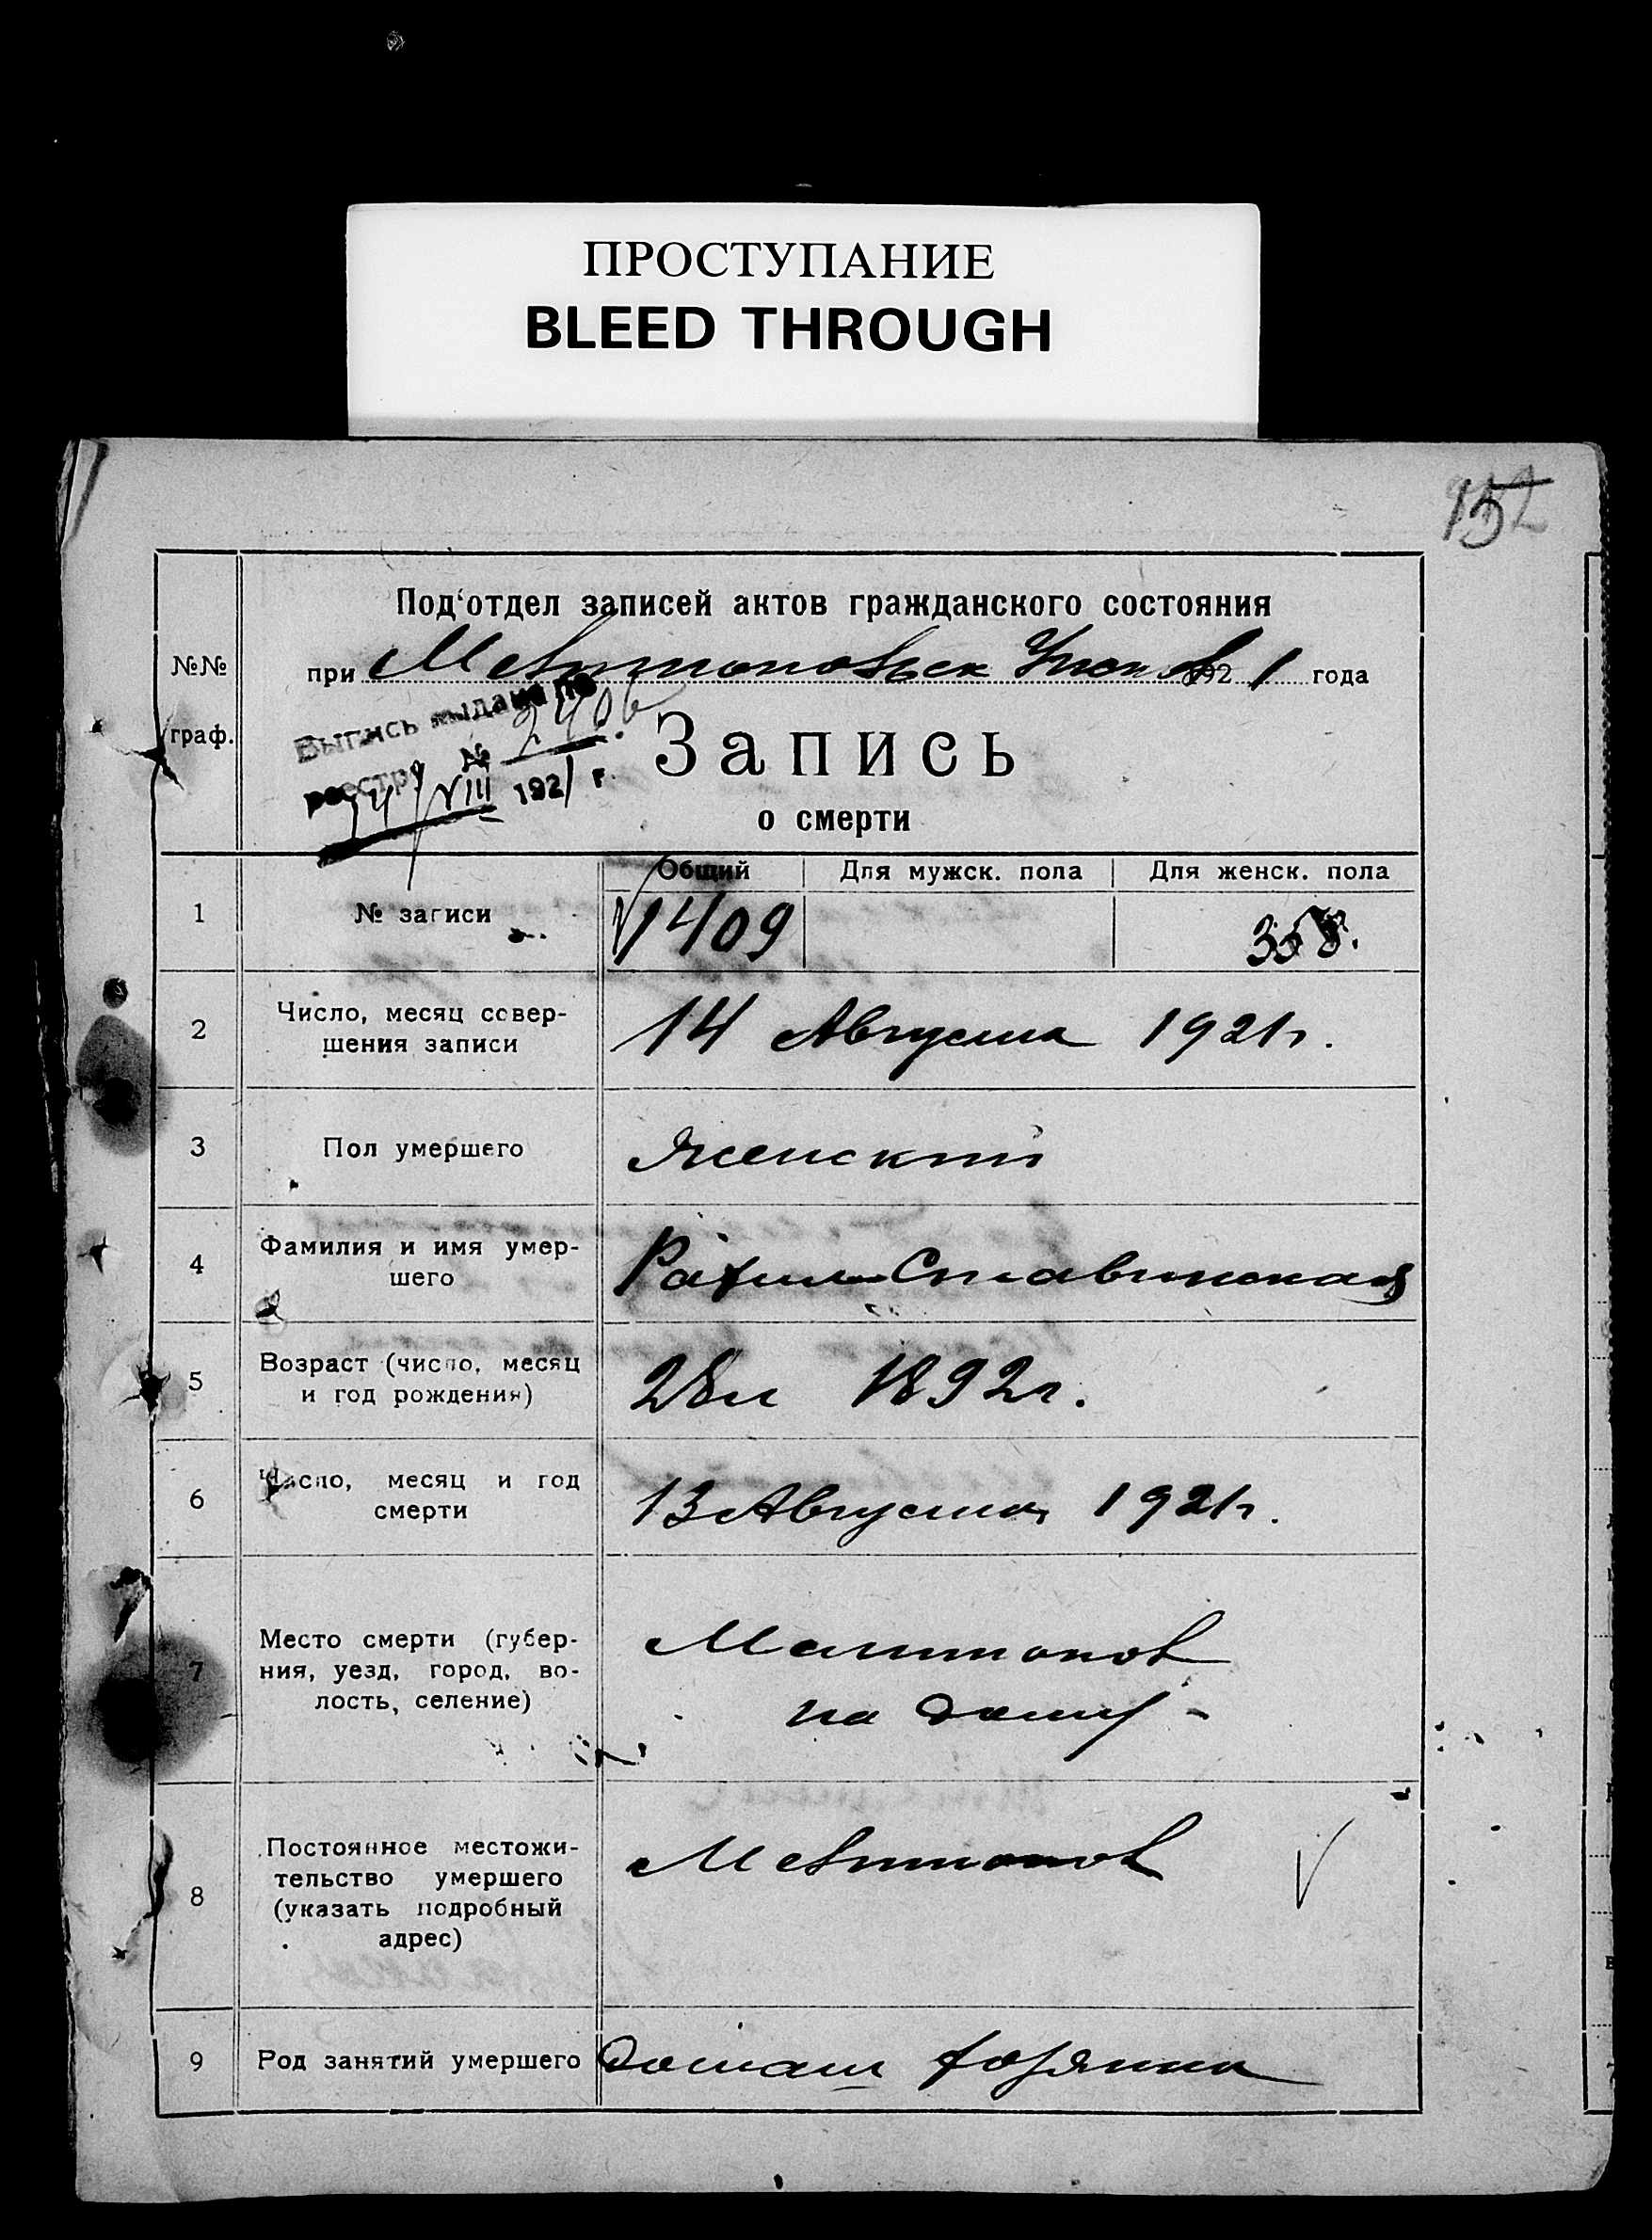 ПРОСТУПАНИЕ
BLEED THROUGH
152
Под'отдел записей актов гражданского состояния
№№ граф.
при Мелитопольск 1921 года
Выпись выдана по
реестру № 2406
14/VIII 1921 г.
Запись
о смерти
Общий Для мужск. пола Для женск. пола
1 № записи 1409 358.
2 Число, месяц совер-
шения записи
14 Августа 1921г.
3 Пол умершего Женский
4 Фамилия и имя умер-
шего
Рахиль Ставинская
5 Возраст (число, месяц
и год рождения)
28л 1892г.
6 Число, месяц и год
смерти
13 Августа 1921г.
7 Место смерти (губер-
ния, уезд, город, во-
лость, селение)
Мелитопол
на дому -
8 Постоянное местожи-
тельство умершего
(указать подробный
адрес)
Мелитопол
9 Род занятий умершего Домаш хозяйка